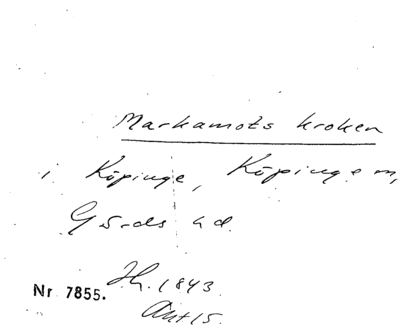 Markamots kroken
i Köpinge, Köpinge m,
Gärds hd.
Nr 7855. Jh. 1843.
Akt 15.